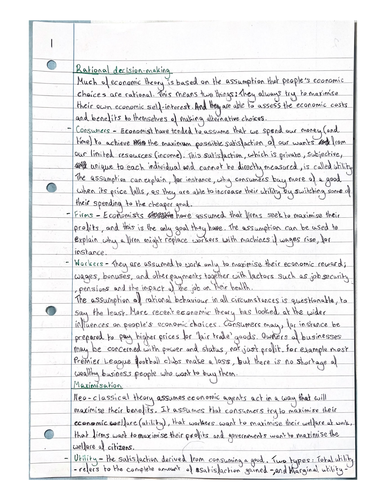 1
Rational decision-making
Much of economic theory is based on the assumption that people's economic
choices are rational. This means two things: They always try to maximise
their own economic self-interest. And they are able to assess the economic costs
and benefits to themselves of making alternative choices.
- Consumers - Economist have tended to assume that we spend our money (and
time) to achieve the maximum possible satisfaction of our wants from
our limited resources (income). This satisfaction, which is private, subjective,
and unique to each individual and cannot be directly measured, is called utility.
The assumption can explain, for instance, why consumers buy more of a good
when its price falls, as they are able to increase their utility by switching some of
their spending to the cheaper good.
- Firms - Economists have assumed that firms seek to maximise their
profits, and this is the only goal they have. The assumption can be used to
explain why a firm might replace workers with machines if wages rise, for
instance.
- Workers - they are assumed to work only to maximise their economic reward;
wages, bonuses, and other payments together with factors such as job security,
pensions and the impact of the job on their health.
The assumption of rational behaviour in all circumstances is questionable, to
say the least. More recent economic theory has looked at the wider
influences on people's economic choices. Consumers may, for instance be
prepared to pay higher prices for 'fair trade' goods. Owners of businesses
may be concerned with power and status, not just profit. for example most
Premier League football clubs make a loss, but there is no shortage of
wealthy business people who want to buy them.
Maximisation
Neo-classical theory assumes economic agents act in a way that will
maximise their benefits. It assumes that consumers try to maximise their
economic welfare (utility), that workers want to maximise their welfare at work,
that firms want to maximise their profits and governments want to maximise the
welfare of citizens.
- Utility - the satisfaction derived from consuming a good. Two types: Total utility
- refers to the complete amount of satisfaction gained - and Marginal utility -